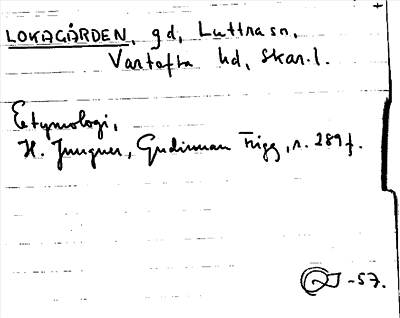 LOKAGÅRDEN, gd, Luttra sn,
Vartofta hd, Skar. l.
Etymologi,
H. Jungner, Gudinnan Frigg, s. 289 f.
-57.